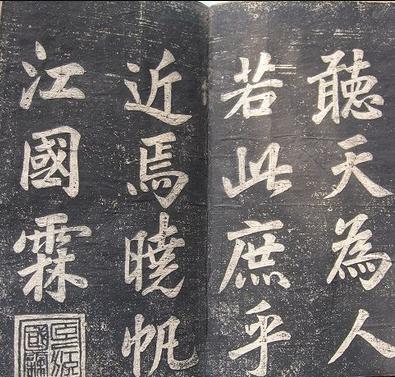 聽天為人
若此庶乎
近焉曉帆
江國霖